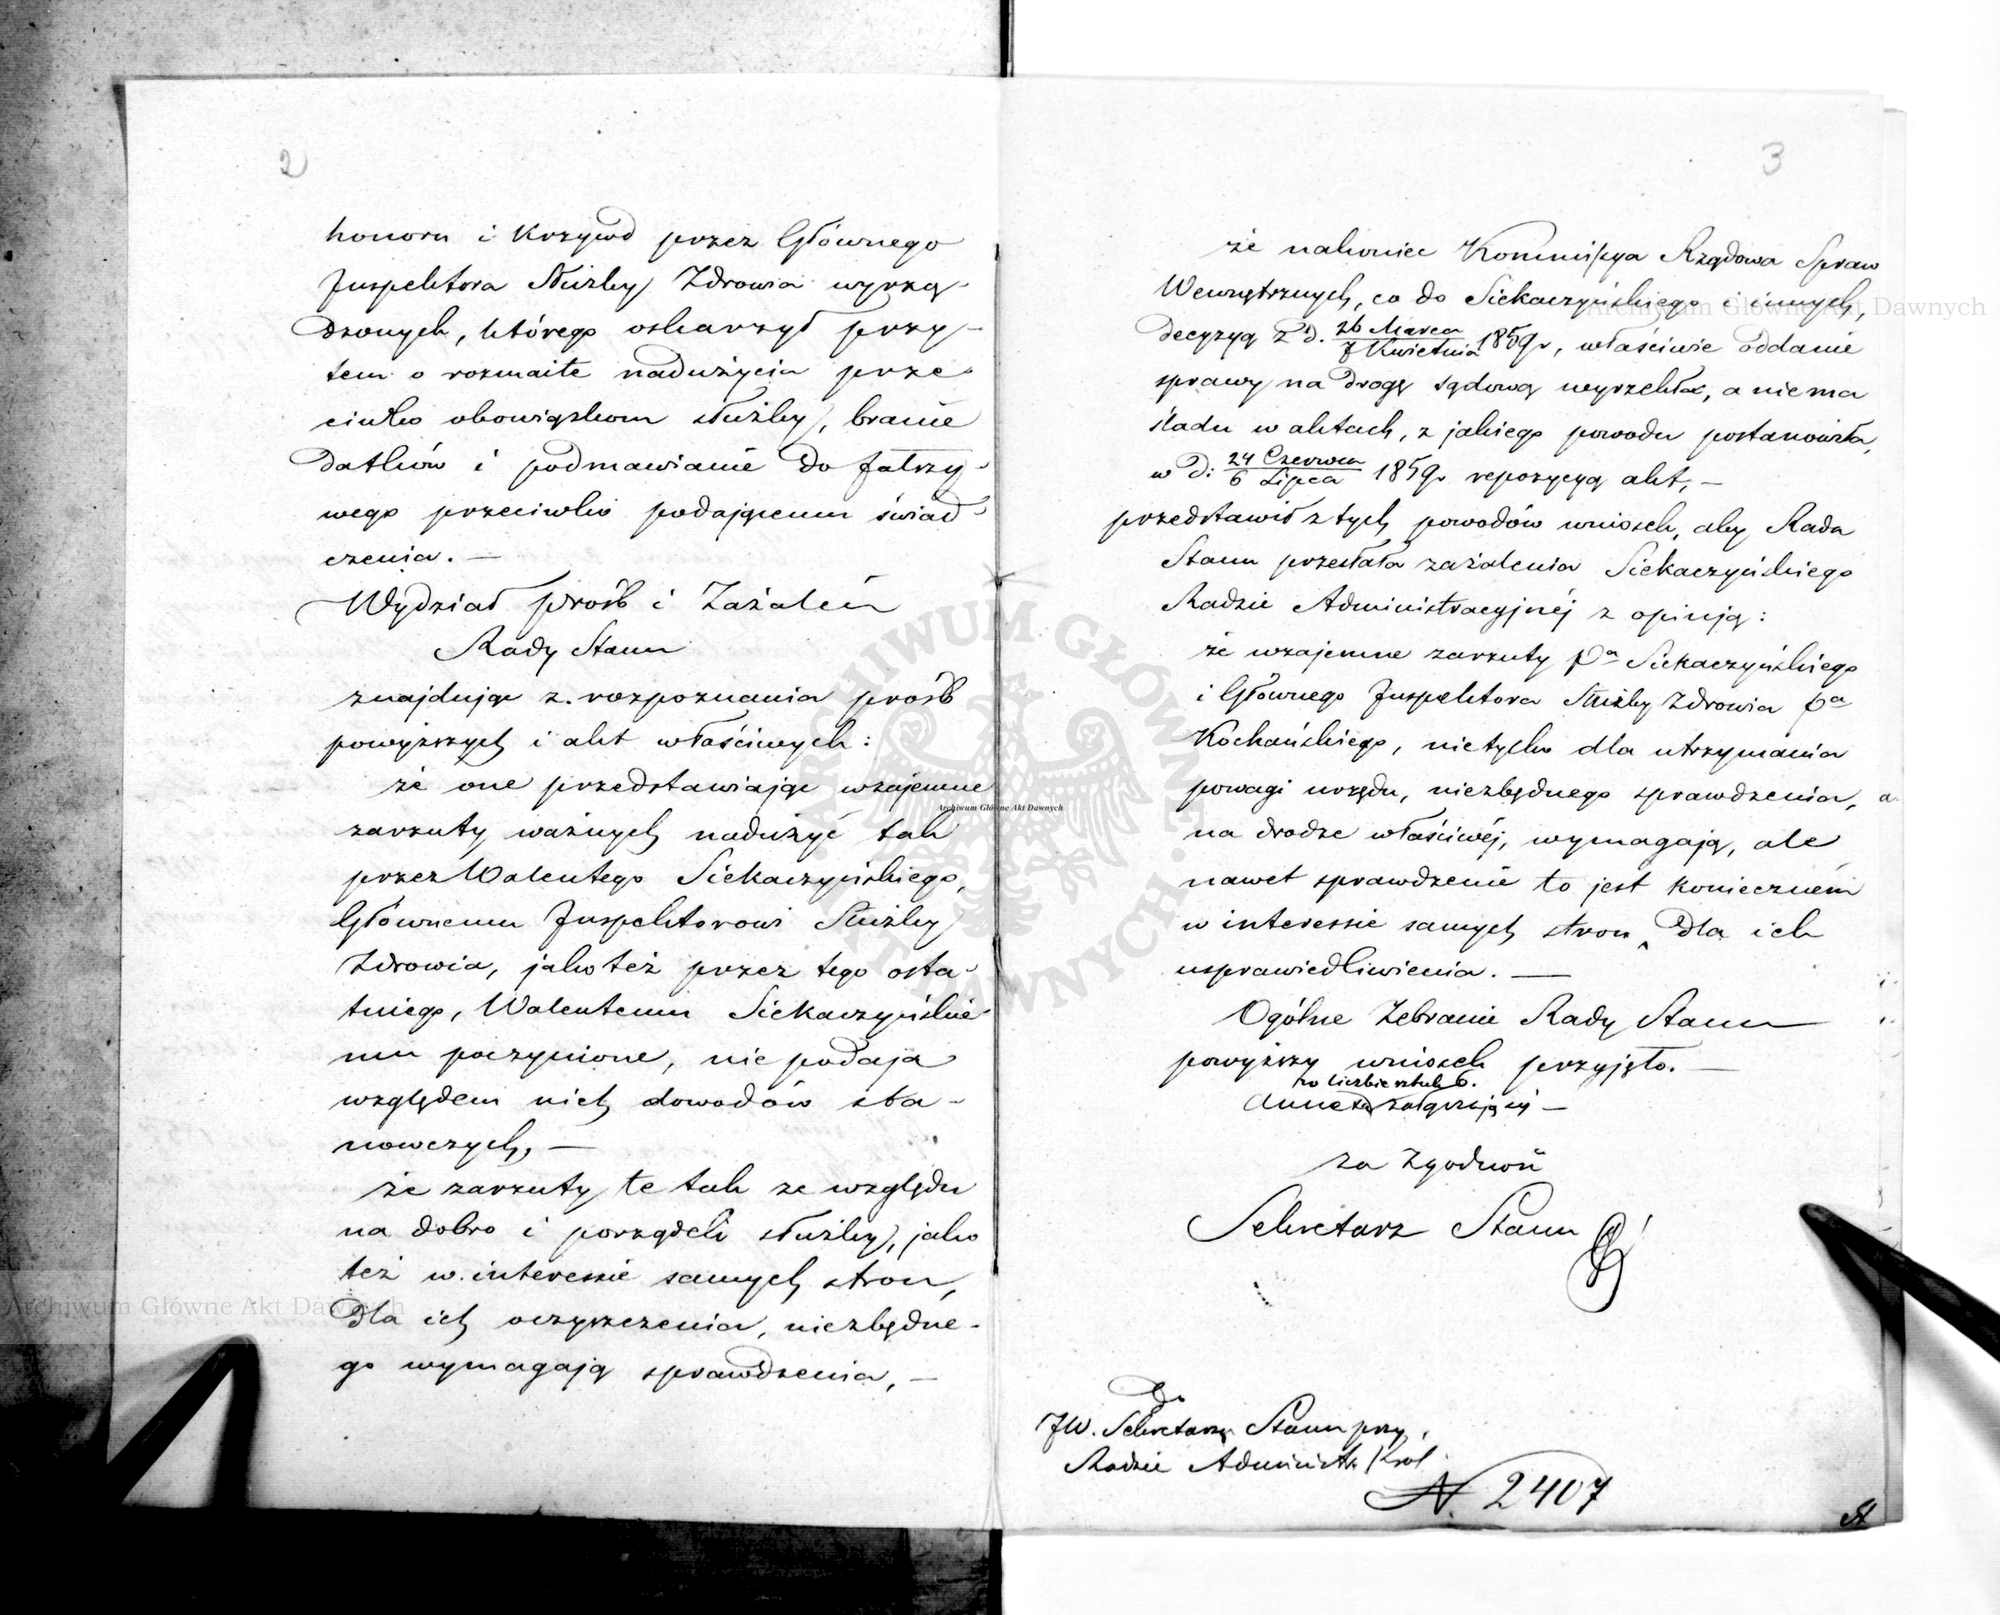 2
honoru i Krzywd przez Głównego
Inspektora Służby Zdrowia wyrzą-
dzonych, którego oskarżył przy-
tem o rozmaite nadużycia prze-
ciwko obowiązkom służby, branie
datków i podmawianie do fałszy-
wego przeciwko podającemu świad-
czenia. —
Wydział próśb i Zażaleń
Rady Stanu
znajdując z rozpoznania próśb
powyższych i akt właściwych:
że one przedstawiając wzajemne
zarzuty ważnych nadużyć tak
przez Walentego Siekaczyńskiego,
Głównemu Inspektorowi Służby
Zdrowia, jako też przez tego osta-
tniego, Walentemu Siekaczyńskie-
mu poczynione, nie podają
względem nich dowodów sta-
nowczych, —
że zarzuty te tak ze względu
na dobro i porządek służby, jako
też w interessie samych stron,
dla ich oczyszczenia, niezbędne-
go wymagają sprawdzenia, —
3
że nakoniec Kommissya Rządowa Spraw
Wewnętrznych, co do Siekaczyńskiego i innych,
decyzyą z d. 26 Marca / 7 Kwietnia 1859 r, właściwie oddanie
sprawy na drogę sądową wyrzekła, a nie ma
śladu w aktach, z jakiego powodu postanowiła,
w d: 24 Czerwca / 6 Lipca 1859 r repozycyą akt, —
przedstawił z tych powodów wniosek, aby Rada
Stanu przesłała zażalenia Siekaczyńskiego
Radzie Administracyjnéj z opinją:
że wzajemne zarzuty Pa Siekaczyńskiego
i Głównego Inspektora Służby Zdrowia Pa
Kochańskiego, nietylko dla utrzymania
powagi urzędu, niezbędnego sprawdzenia,
na drodze właściwéj, wymagają, ale
nawet sprawdzenie to jest konieczném
w interessie samych stron dla ich
usprawiedliwienia. —
Ogólne Zebranie Rady Stanu
powyższy wniosek przyjęło. —
w liczbie sztuk 6.
Annexa załączają się —
Za Zgodność
Sekretarz Stanu
Do
JW. Sekretarza Stanu przy
Radzie Administr. Król.
N. 2407
Archiwum Główne Akt Dawnych
Archiwum Główne Akt Dawnych
Archiwum Główne Akt Dawnych
ARCHIWUM GŁÓWNE AKT DAWNYCH